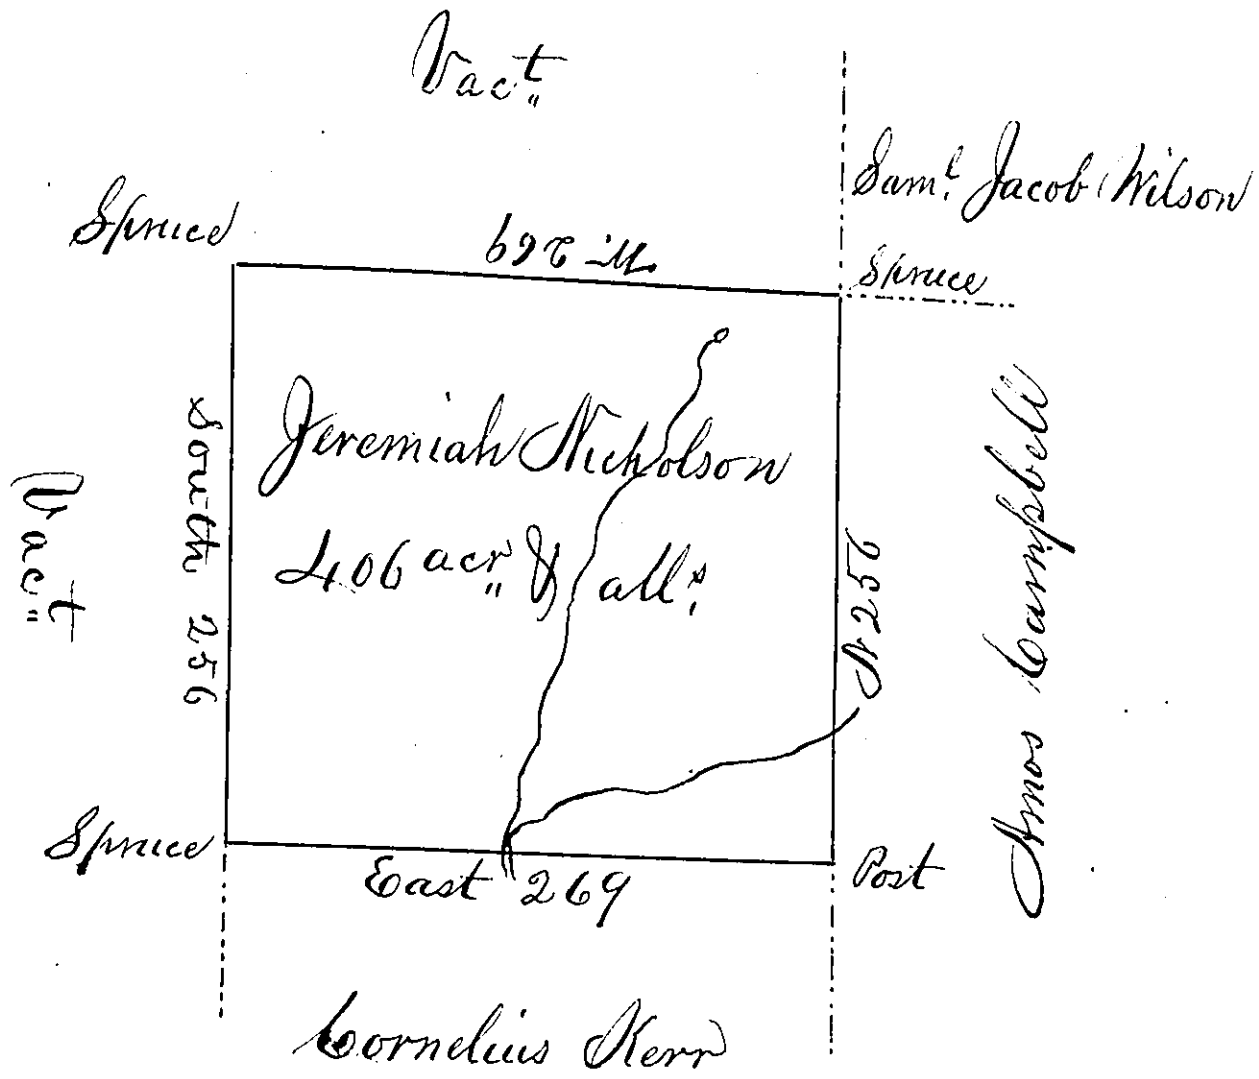 Vac.t
Saml. Jacob Wilson
Spruce
W. 269
Spruce
Jeremiah Nicholson
406 acr. & alls.
South 256
Vac.t
N 256
Amos Campbell
Spruce
East 269
Post
Cornelius Kerr